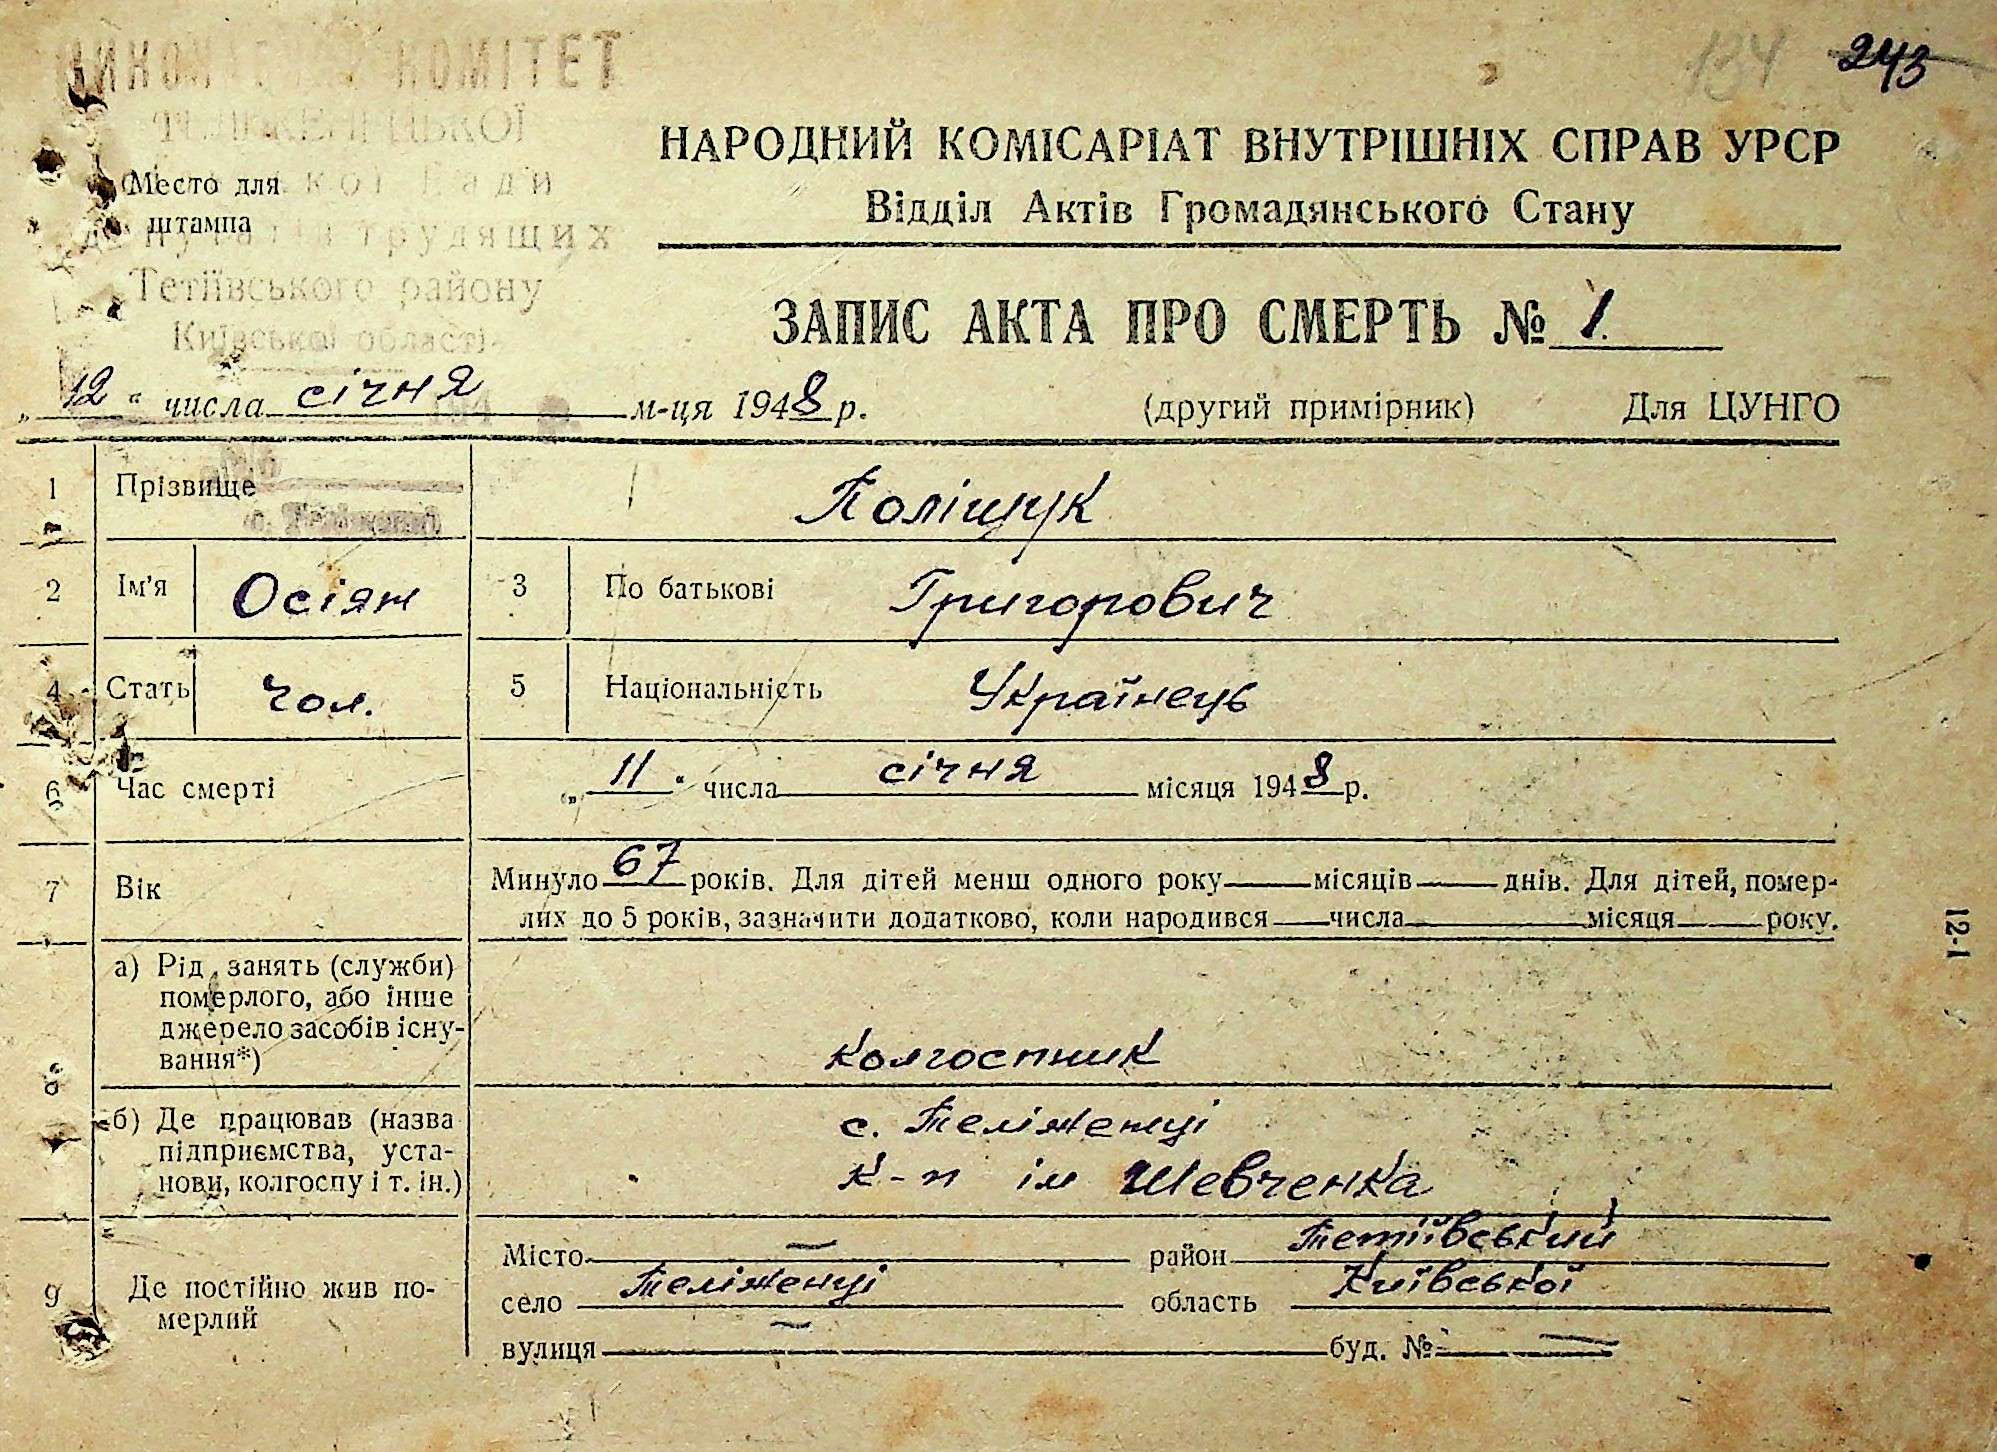 134 243
ВИКОНАВЧИЙ КОМІТЕТ
ТЕЛІЖЕНЕЦЬКОЇ
сільської Ради
депутатів трудящих
Тетіївського району
Київської області
Место для
штампа
НАРОДНИЙ КОМІСАРІАТ ВНУТРІШНІХ СПРАВ УРСР
Відділ Актів Громадянського Стану
ЗАПИС АКТА ПРО СМЕРТЬ № 1.
„12“ числа січня м-ця 1948 р. (другий примірник) Для ЦУНГО
1 Прізвище Поліщук
2 Ім'я Осіян 3 По батькові Григорович
4 Стать чол. 5 Національність Українець
6 Час смерті „11“ числа січня місяця 1948 р.
7 Вік Минуло 67 років. Для дітей менш одного року місяців днів. Для дітей, помер-
лих до 5 років, зазначити додатково, коли народився числа місяця року.
8 а) Рід занять (служби)
померлого, або інше
джерело засобів існу-
вання*) колгоспник
б) Де працював (назва
підприємства, уста-
нови, колгоспу і т. ін.)
с. Теліженці
к-п ім Шевченка
9 Де постійно жив по-
мерлий
Місто — район Тетіївський
село Теліженці область Київської
вулиця — буд. № —
12-1